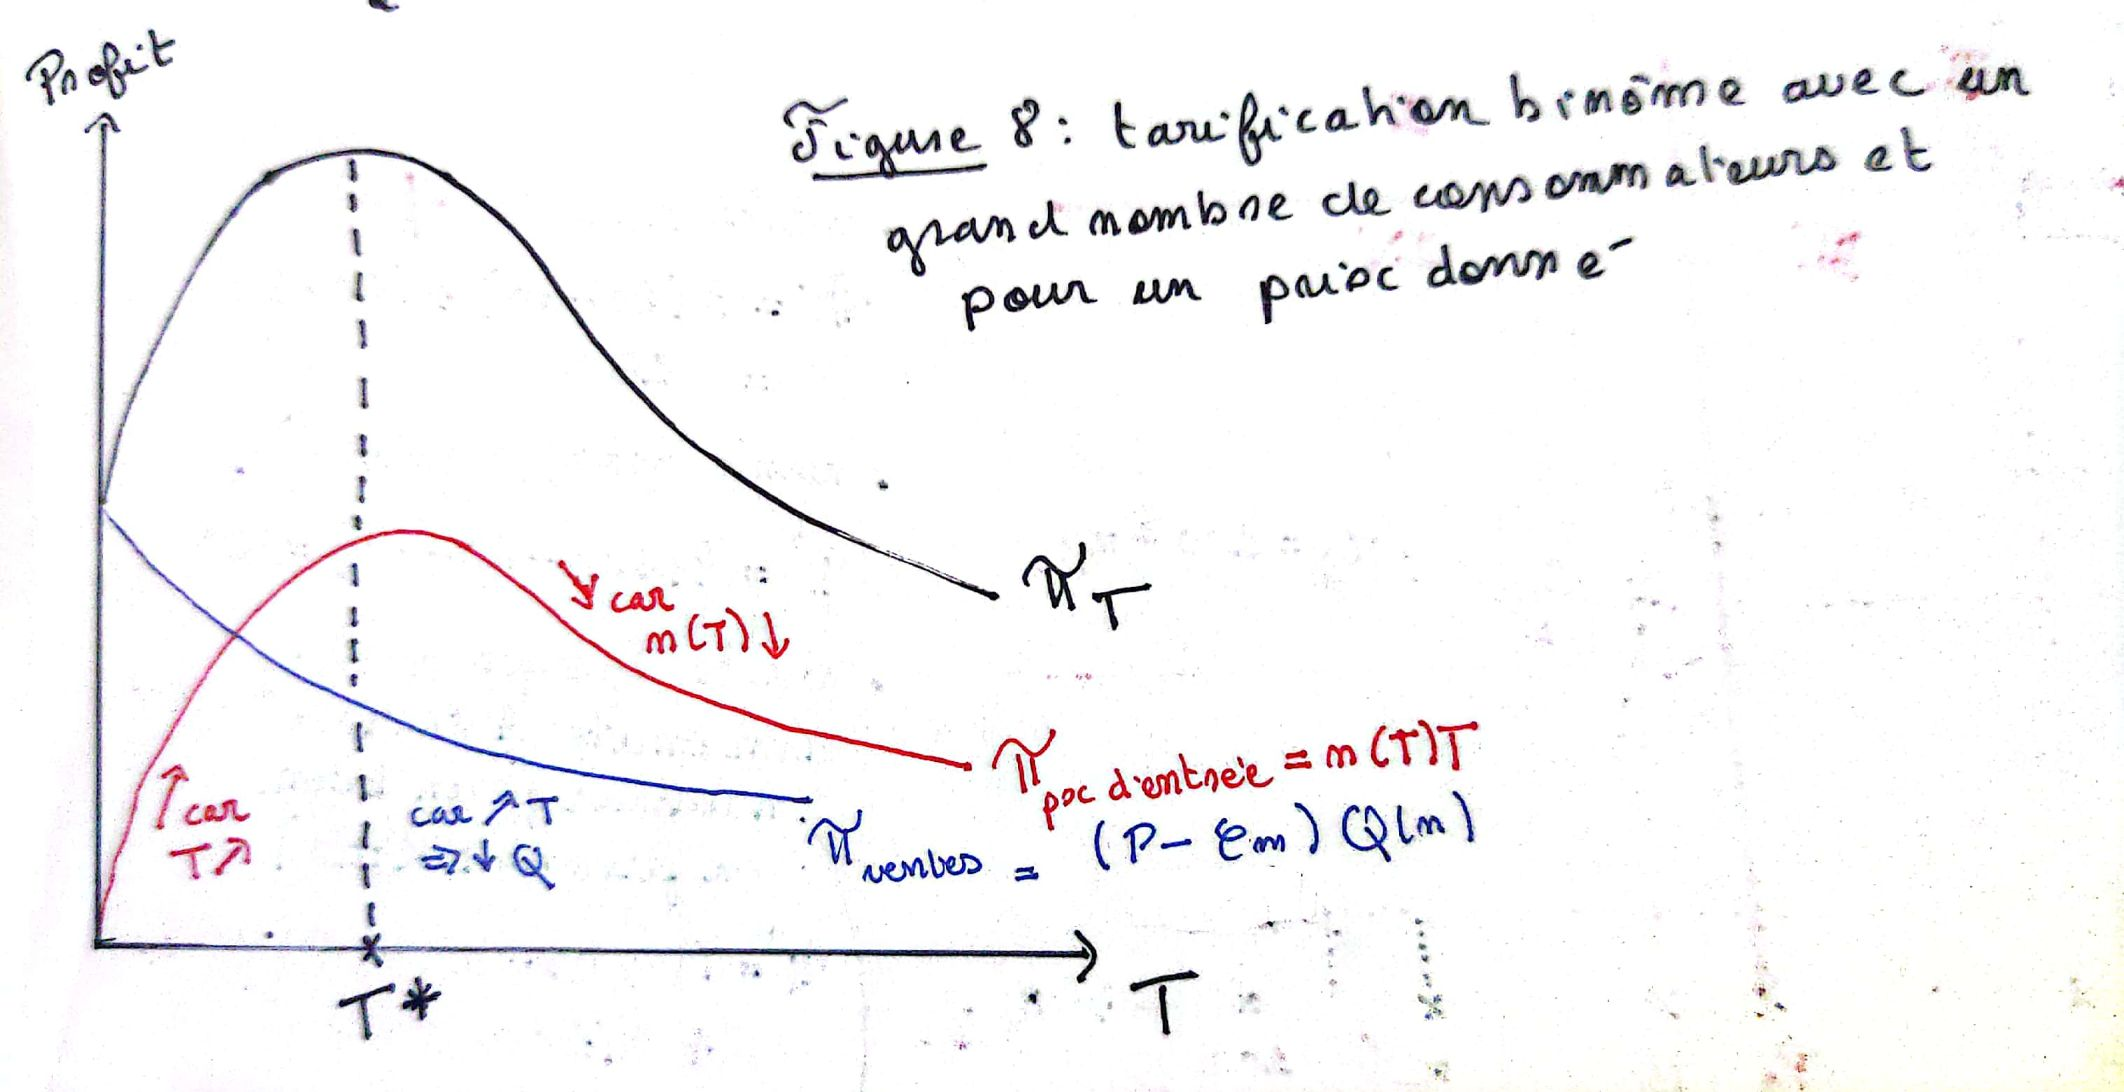 Profit
Figure 8 : tarification binôme avec un
grand nombre de consommateurs et
pour un prix donné
π_T
↘ car
n(T) ↓
π px d'entrée = n(T)T
↗ car
T ↗
car ↗ T
⇒ ↓ Q
π ventes = (P - Cm) Q(n)
T*
T